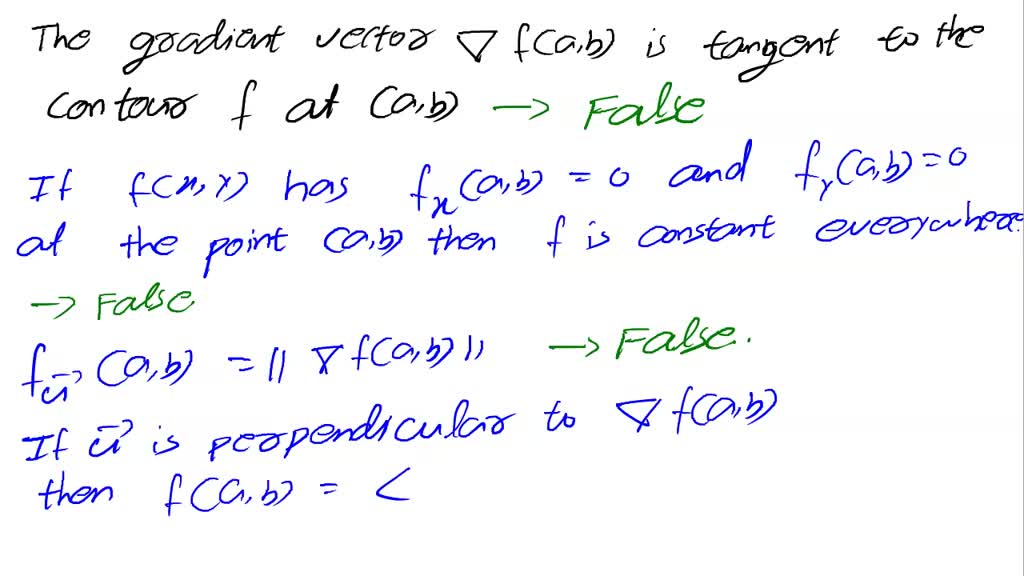 The gradient vector ∇ f(a,b) is tangent to the
contour f at (a,b) → False
If f(x,y) has fx(a,b) = 0 and fy(a,b)=0
at the point (a,b) then f is constant everywhere.
→ False
fu⃗ (a,b) = || ∇ f(a,b) || → False.
If u⃗ is perpendicular to ∇ f(a,b)
then f(a,b) = <